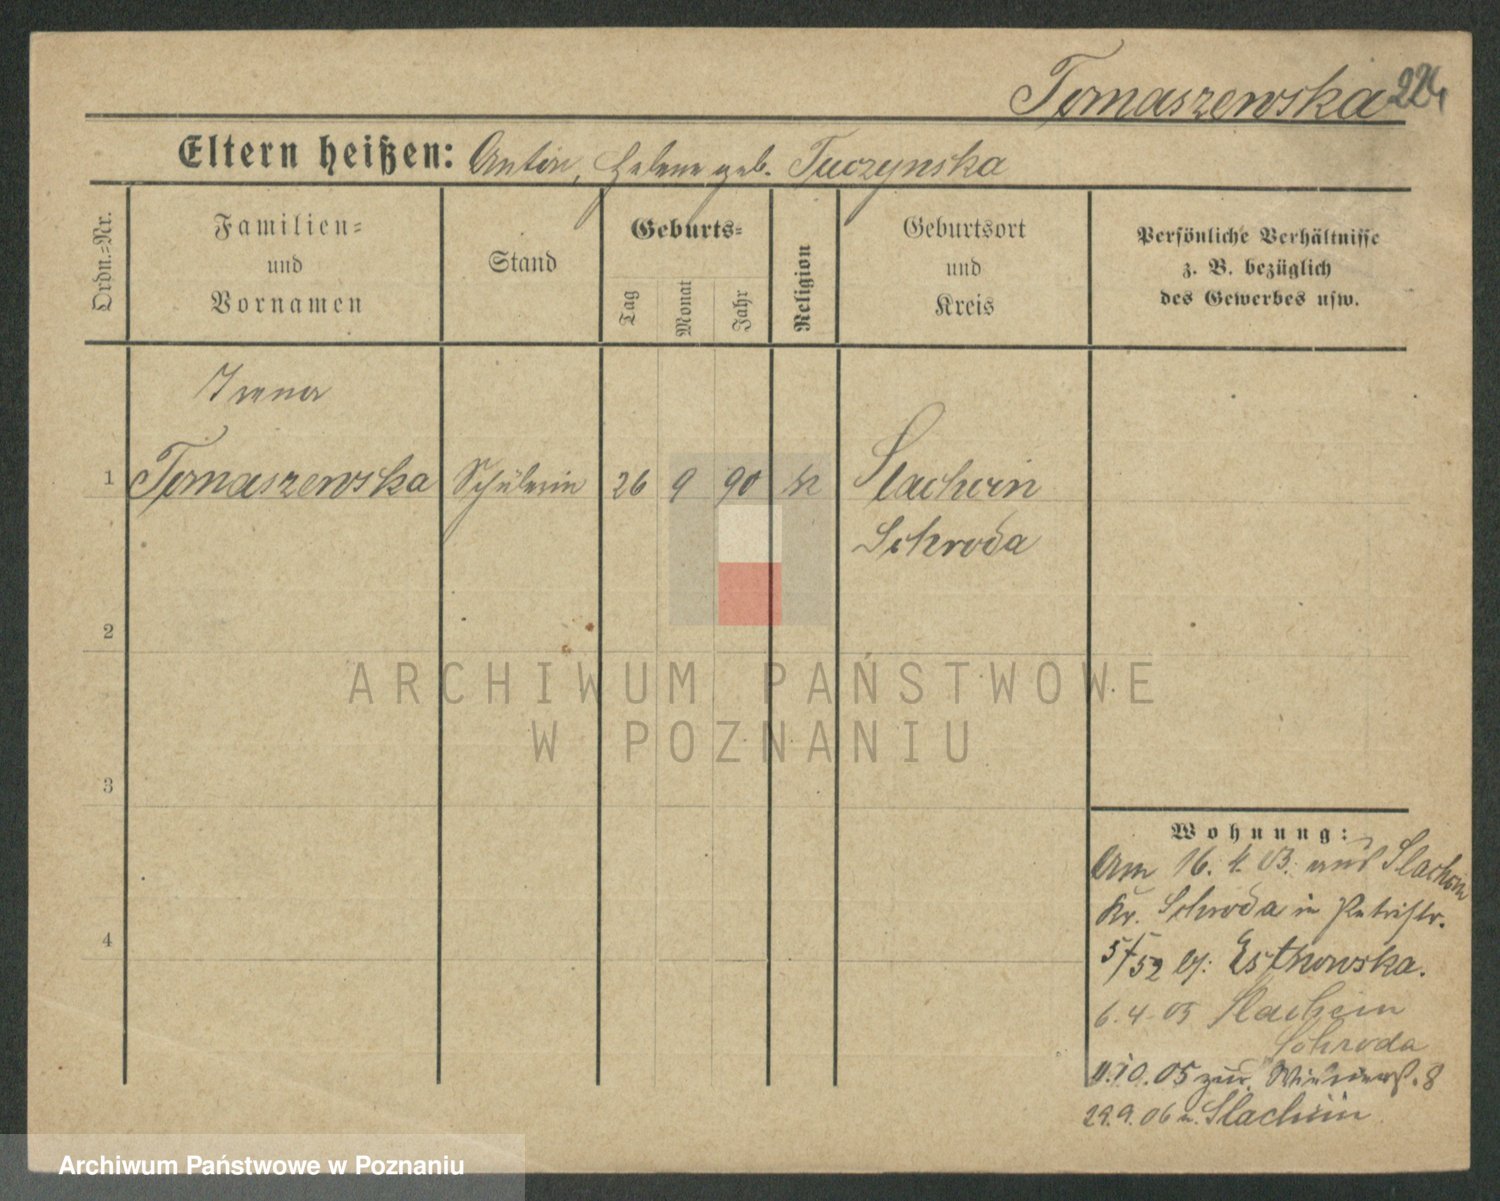 Tomaszewska 224
Eltern heißen: Anton, Helene geb. Tuczynska
Ordn.=Nr.
Familien=
und
Vornamen
Stand
Geburts=
Tag
Monat
Jahr
Religion
Geburtsort
und
Kreis
Persönliche Verhältnisse
z. B. bezüglich
des Gewerbes usw.
Irena
1 Tomaszewska Schülerin 26 9 90 k Slachcin
Schroda
2
3
4
Wohnung:
Am 16. 4. 03. aus Slachcin
Kr. Schroda in Petristr.
5/52 bei
6. 4. 05 Slachcin
Schroda
11.10.05 zur. 8
29.9.06 n. Slachcin
ARCHIWUM PAŃSTWOWE
W POZNANIU
Archiwum Państwowe w Poznaniu